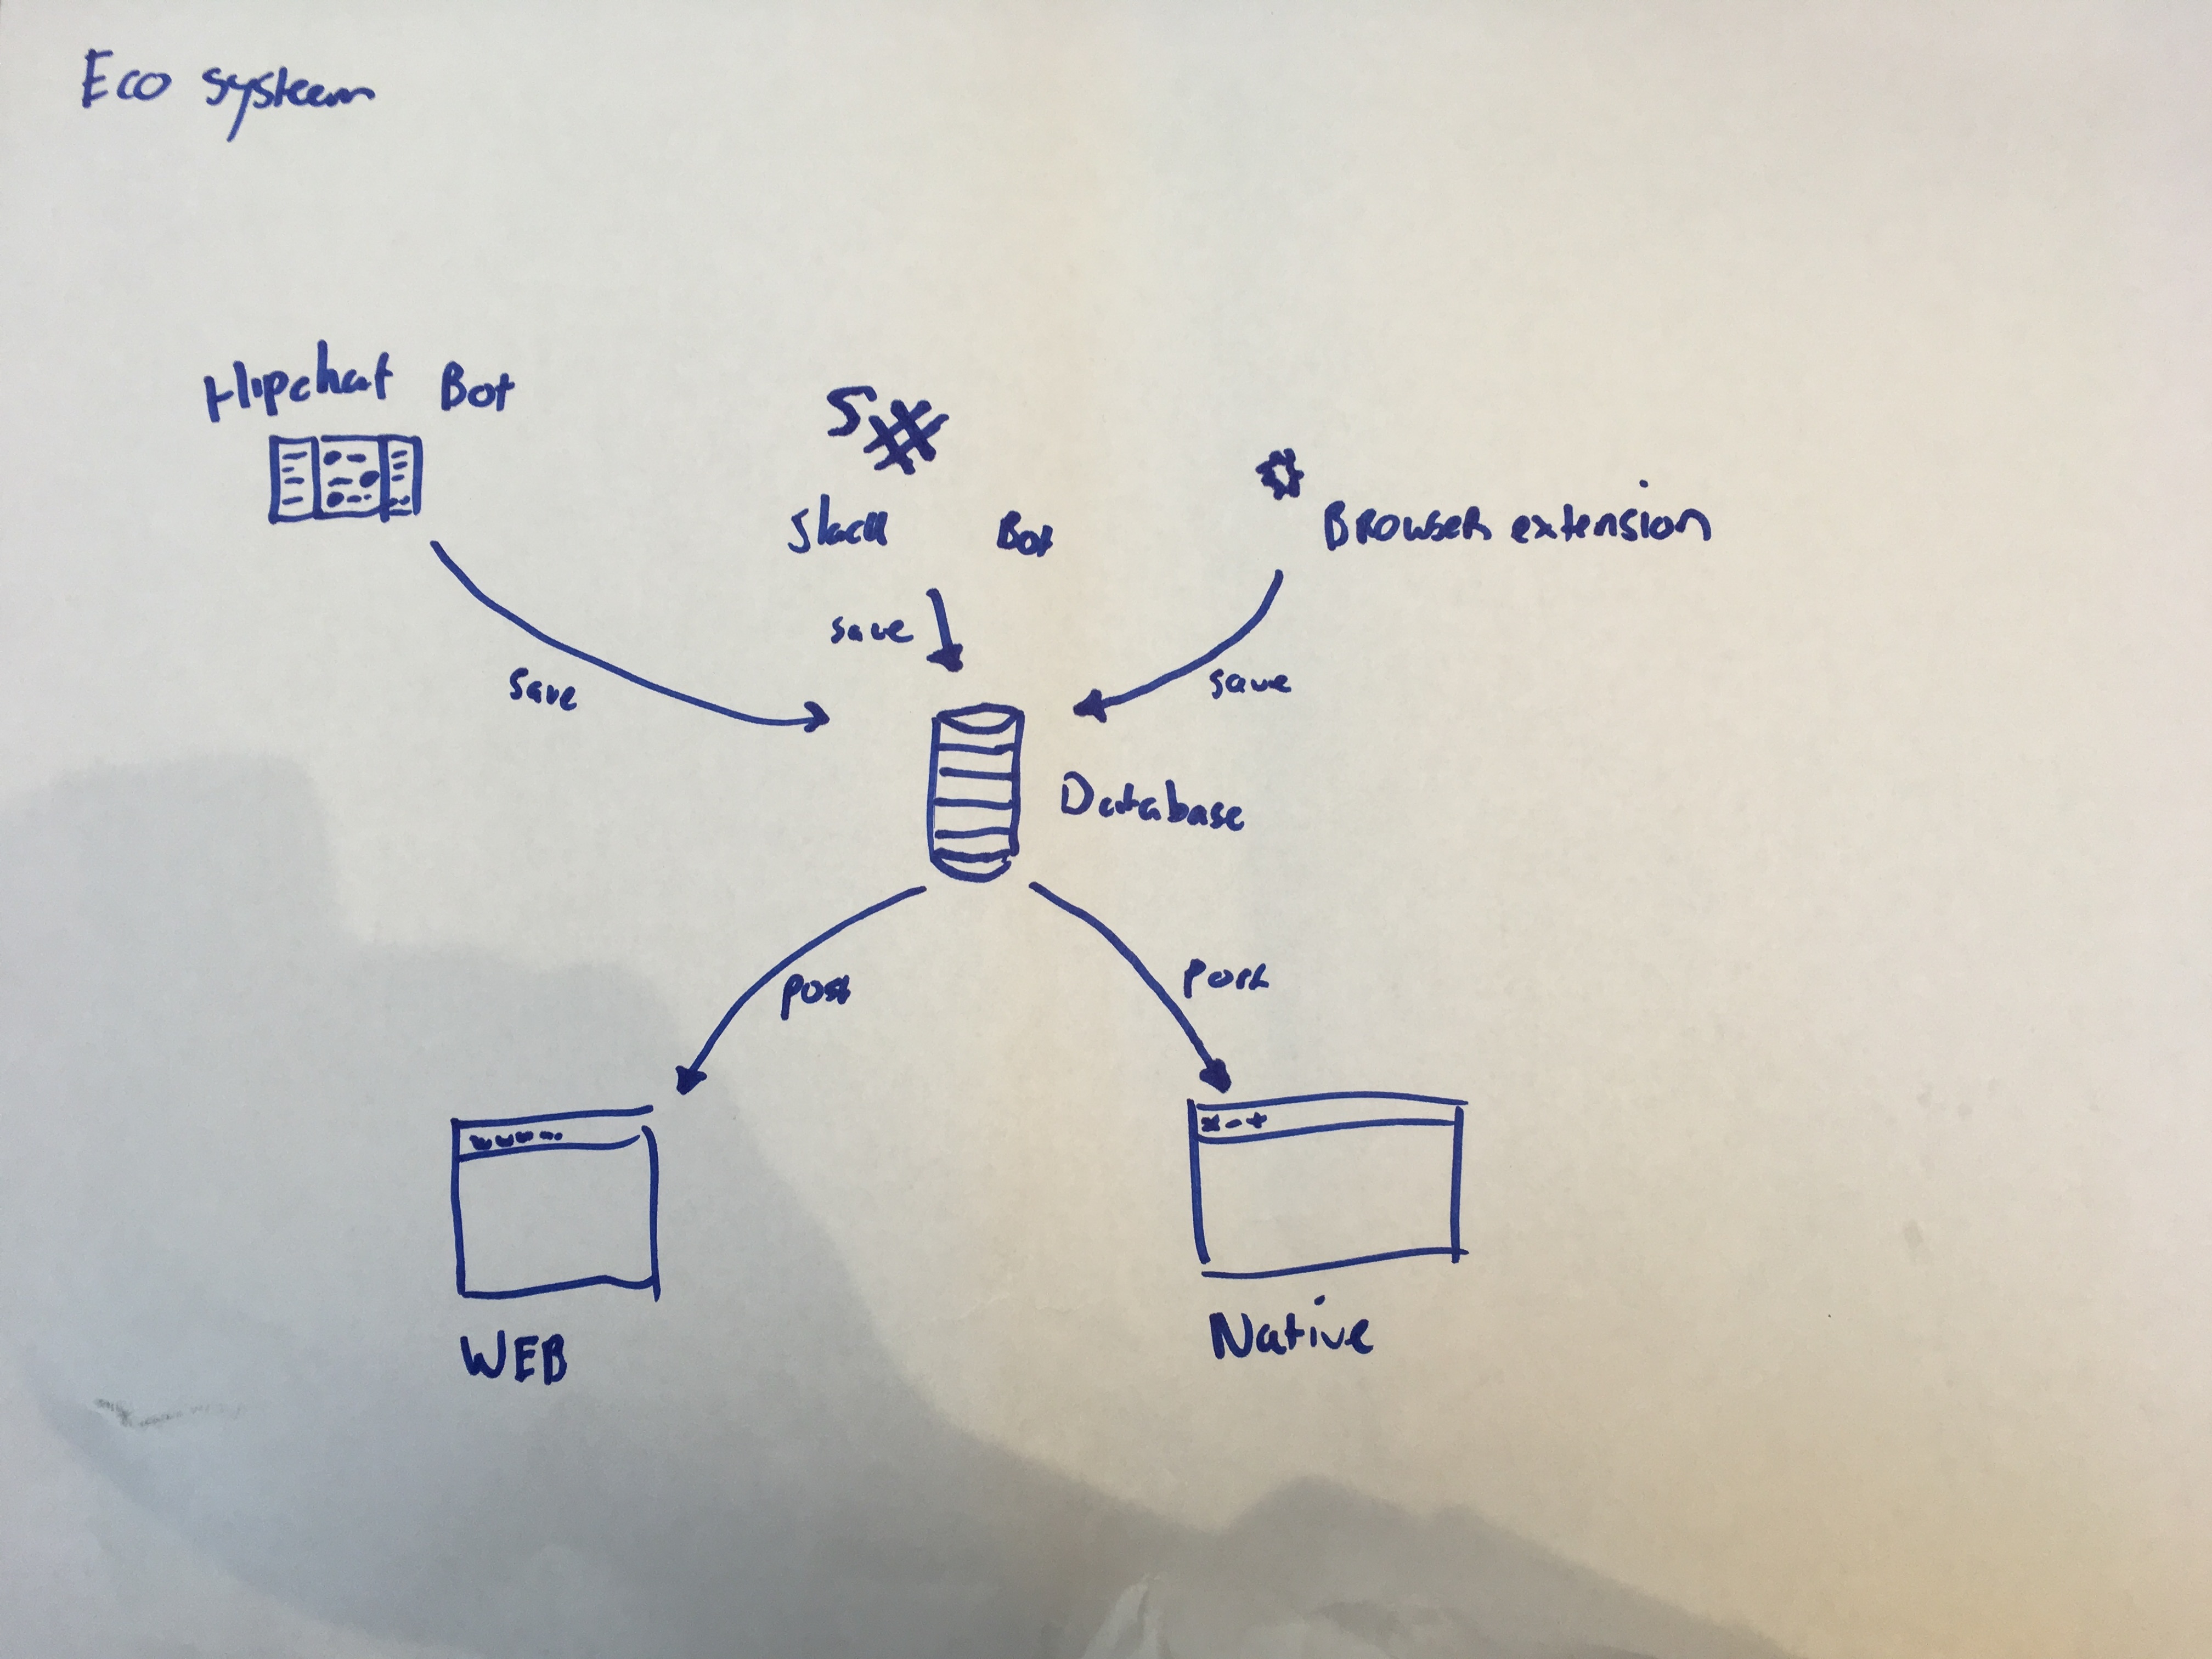 Eco systeem
Hipchat Bot
S
Slack Bot
Browser extension
save
save
save
Database
post
post
www...
x - +
WEB
Native